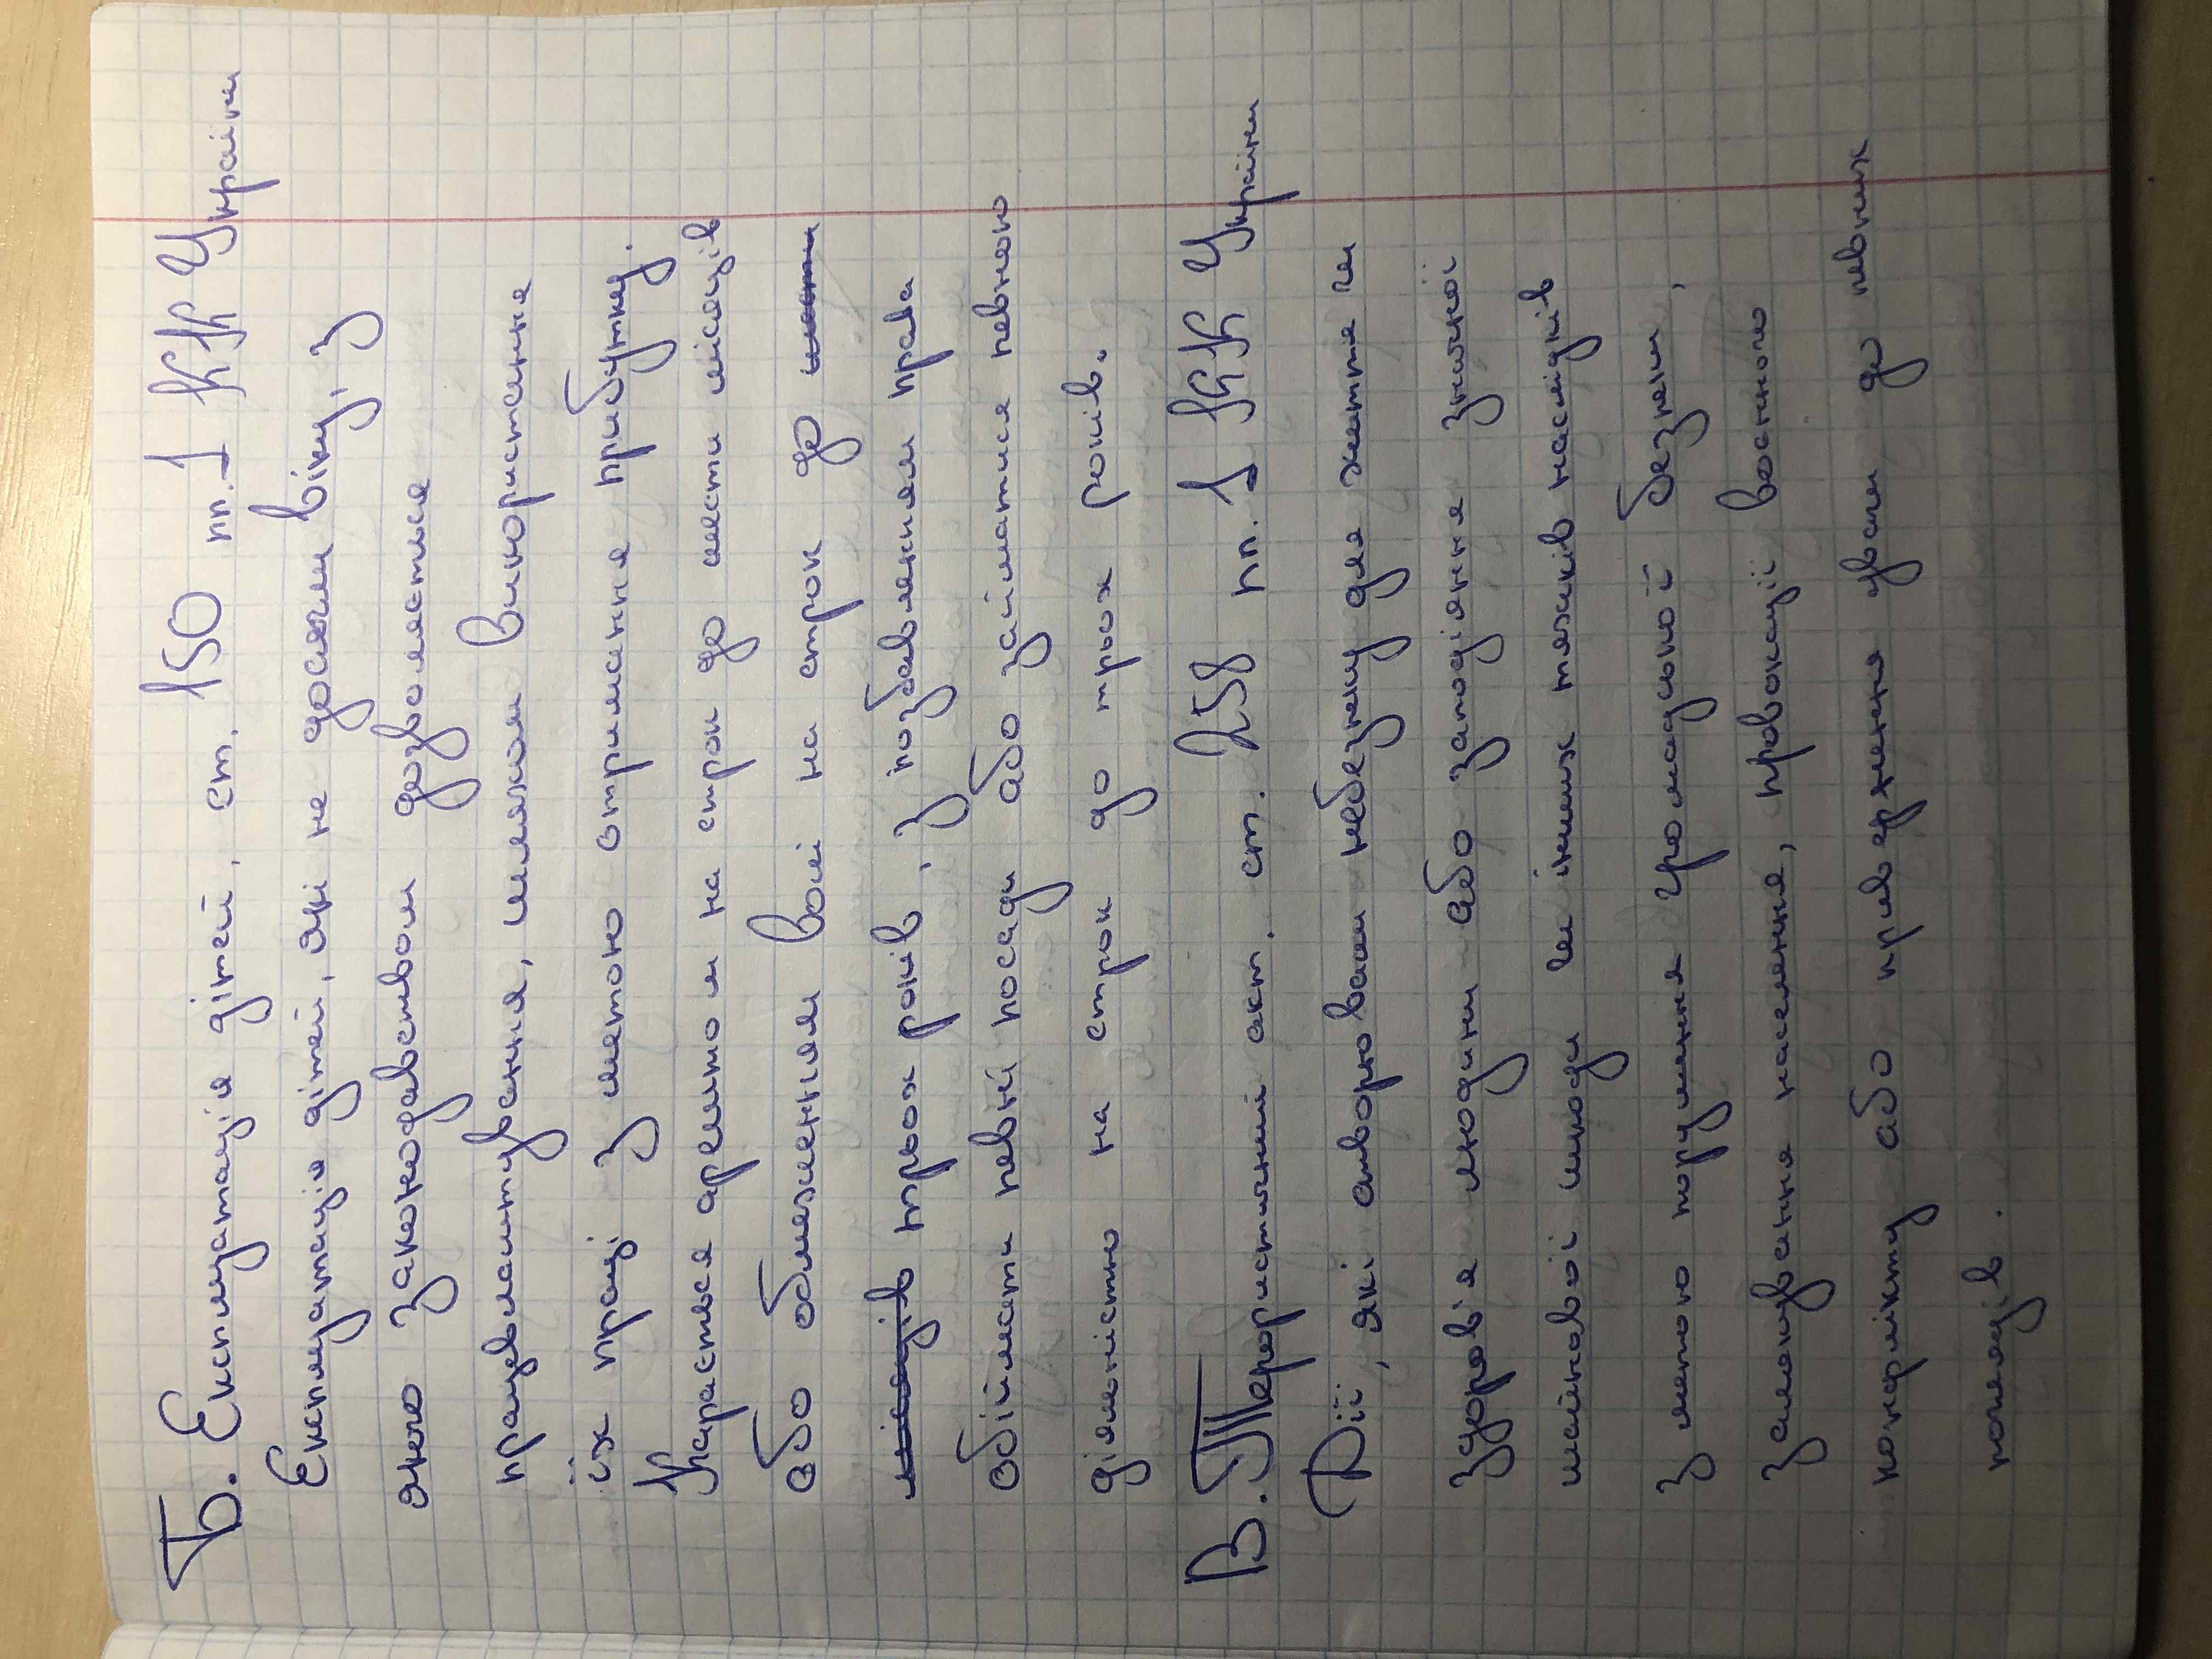 Б. Експлуатація дітей, ст. 150 пп.1 КК України
Експлуатація дітей, які не досягли віку, з
якого законодавством дозволяється
працевлаштування, шляхом використання
їх праці з метою отримання прибутку.
Карається арештом на строк до шести місяців
або обмеженням волі на строк до шести
місяців трьох років, з позбавленням права
обіймати певні посади або займатися певною
діяльністю на строк до трьох років.
В. Терористичний акт. ст. 258 пп. 1 КК України
Дії, які створювали небезпеку для життя чи
здоров'я людини або заподіяння значної
майнової шкоди чи інших тяжких наслідків
з метою порушення громадської безпеки,
залякування населення, провокації воєнного
конфлікту або привернення уваги до певних
поглядів.